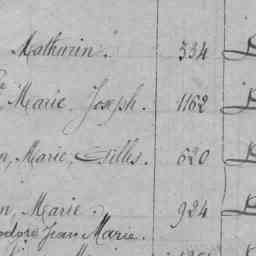 Mathurin. 334
Marie Joseph. 1162
n, Marie, Gilles. 620
n, Marie. 924
odore Jean Marie.